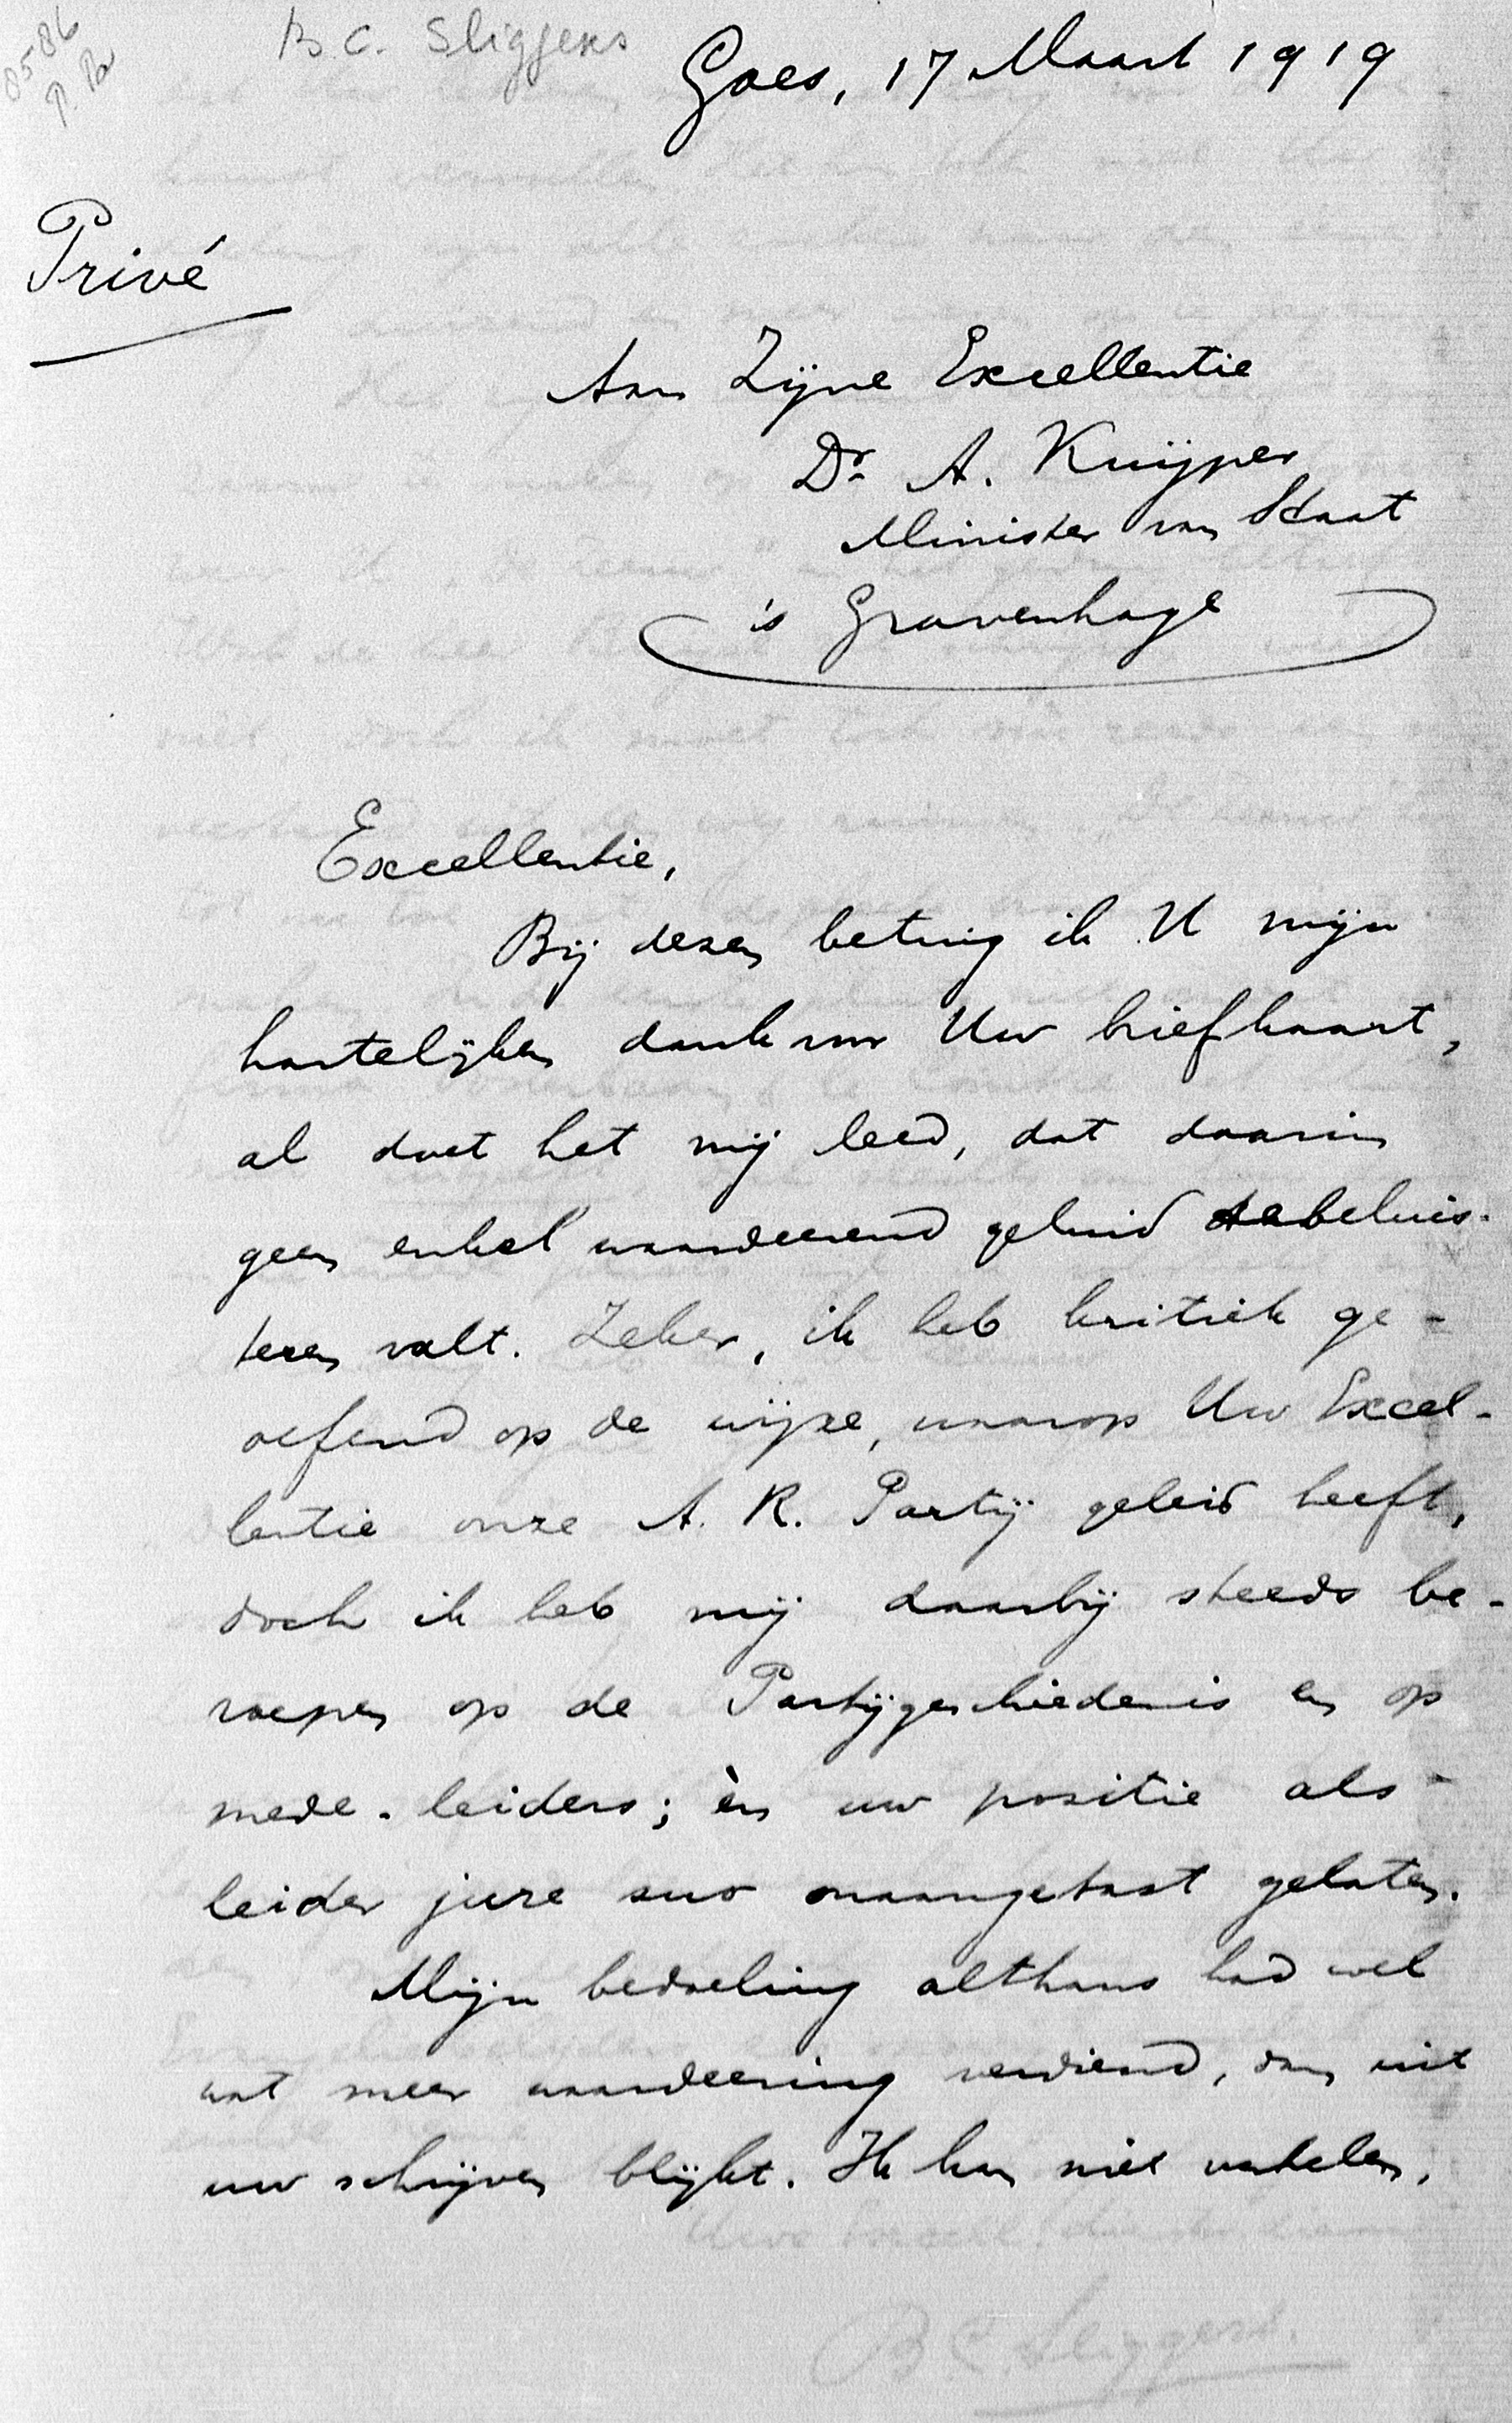 8586
B. C. Sliggers
Goes, 17 Maart 1919
Privé
Aan Zijne Excellentie
Dr. A. Kuijper
Minister van Staat
's Gravenhage
Excellentie,
Bij dezen betuig ik U mijn
hartelijken dank voor Uw briefkaart,
al doet het mij leed, dat daarin
geen enkel waardeerend geluid te beluis-
teren valt. Zeker, ik heb kritiek ge-
oefend op de wijze, waarop Uw Excel-
lentie onze A. R. Partij geleid heeft,
doch ik heb mij daarbij steeds be-
roepen op de Partijgeschiedenis en op
mede-leiders; èn uw positie als
leider jure suo onaangetast gelaten.
Mijn bedoeling althans had wel
wat meer waardeering verdiend, dan uit
uw schrijven blijkt. Ik kan niet
B C. Sliggers.